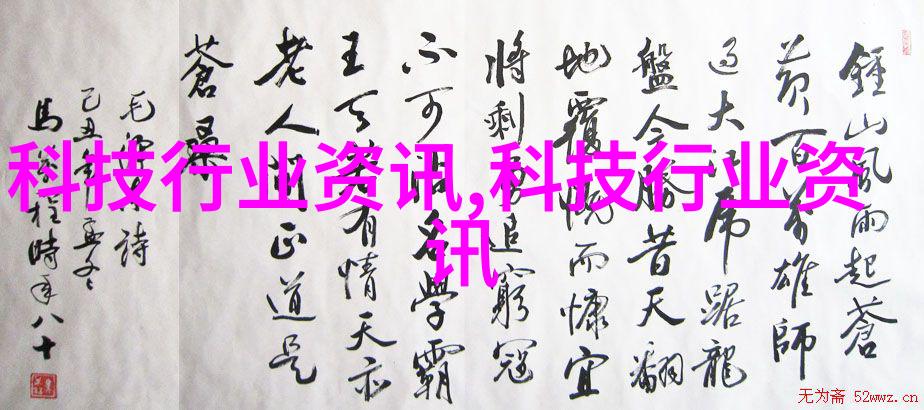 鍾山風雨起蒼
黄百萬雄師
過大江虎踞龍
盤今勝昔天翻
地覆慨而慷宜
將剩勇追窮寇
不可沽名學霸
王天若有情天亦
老人間正道是
蒼桑
毛詩
己丑年孟冬
馬程時年八十
科技行业资讯,科技行业资
讯
无为斋 52wwz.cn